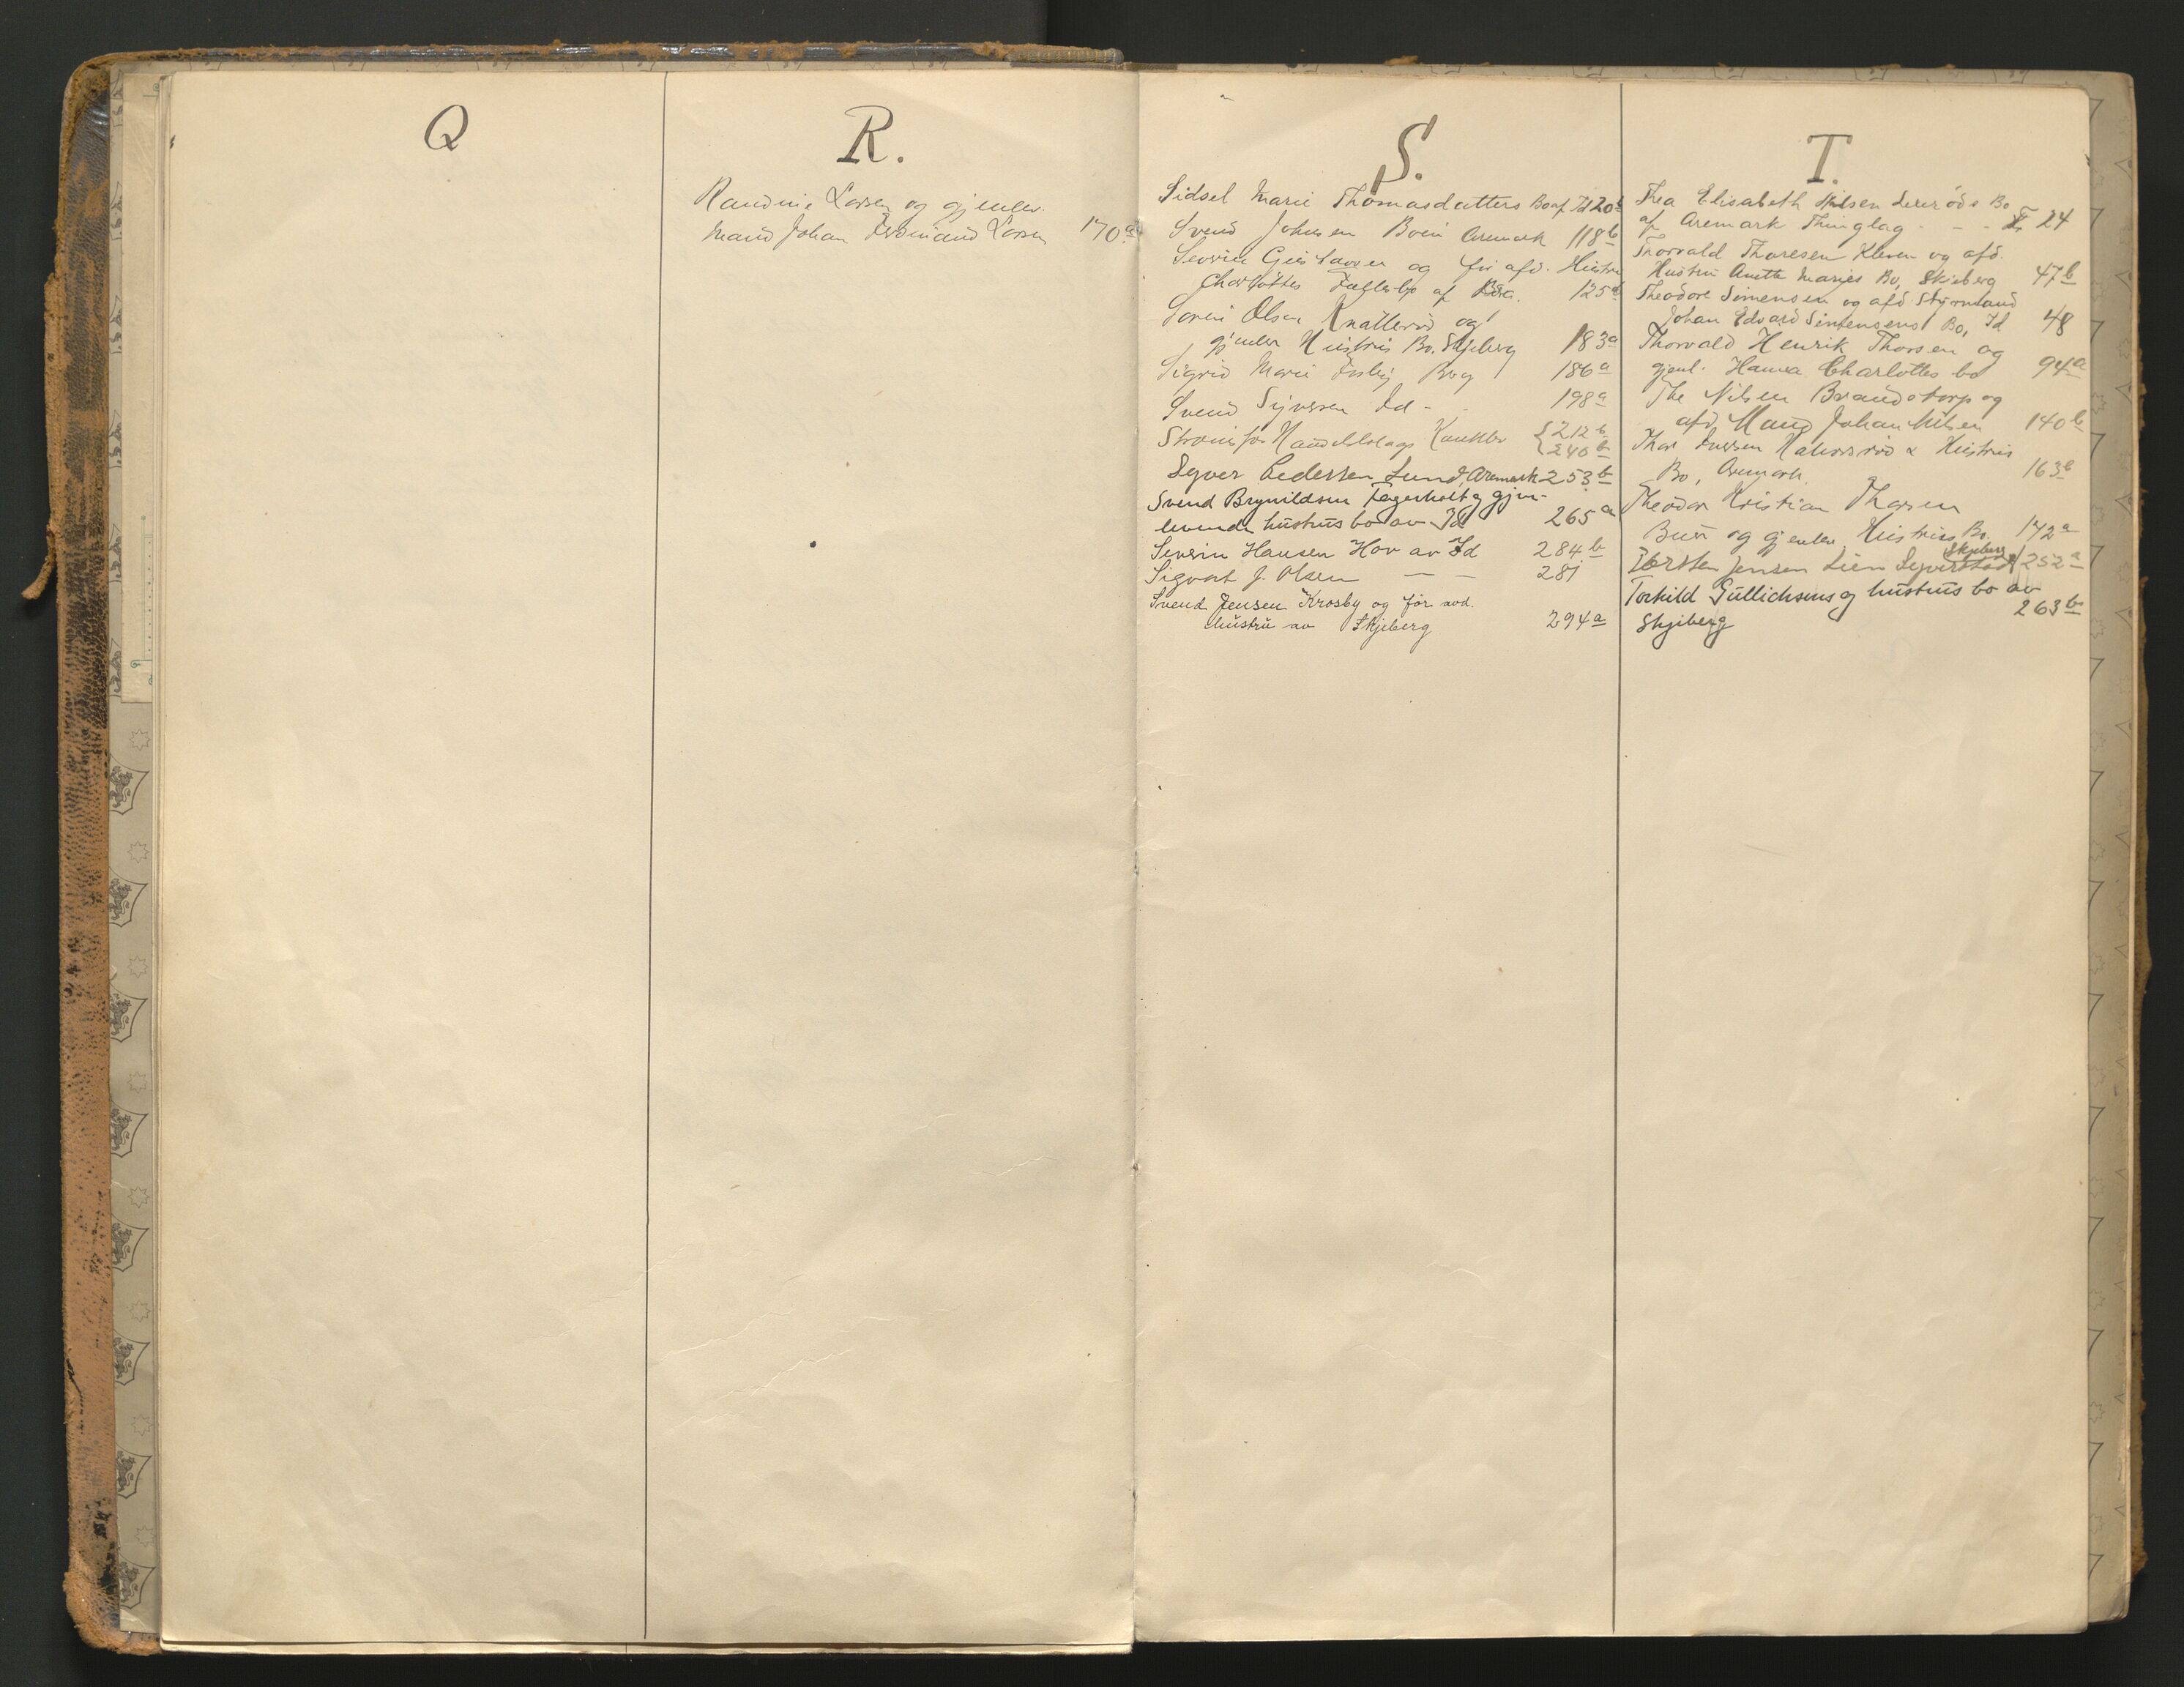 Q
R.
Randine Larsen og gjenlev.
Mand Johan Ferdinand Larsen 170a
S.
Sidsel Marie Thomasdatters Bo af Id 20b
Svend Johnsen Boen Aremark 118b
Severin Gustavsen og før afd. Hustru
Charlottes Fællesbo af 125a
Søren Olsen Knatterød og
gjenlev Hustrus Bo. Skjeberg 183a
Sigrid Marie Bo 186a
Svend Syversen Id - 198a
Handelslags {212b
{240b
Syver Pedersen Lund, Aremark 253b
Svend Brynildsen Fagerholt og gjen-
levende hustrus bo av Id 265a
Severin Hansen Hov av Id 284b
Sigvart J. Olsen — — 281
Svend Jensen Krosby og før avd.
hustru av Skjeberg 294a
T.
Thea Elisabeth Nilsen Bo
af Aremark Thinglag - - - 24
Thorvald Thoresen Kleven og afd.
Hustru Anette Maries Bo, Skjeberg 47b
Theodore Simensen og afd Styrmand
Johan Edvard Simensens Bo, Id 48
Thorvald Henrik Thorsen og
gjenl. Hanna Charlottes bo 94a
The Nilsen Brandstorp og
afd. Mand Johan Nilsen 140b
Thor Iversen & Hustrus
Bo, Aremark 163b
Theodor Kristian Thorsen
Buer og gjenlev. Hustrus Bo. 172a
Torsten Jensen Lien Syverstad Skjeberg 252a
Torkild Gullichsens og hustrus bo av
Skjeberg 263b